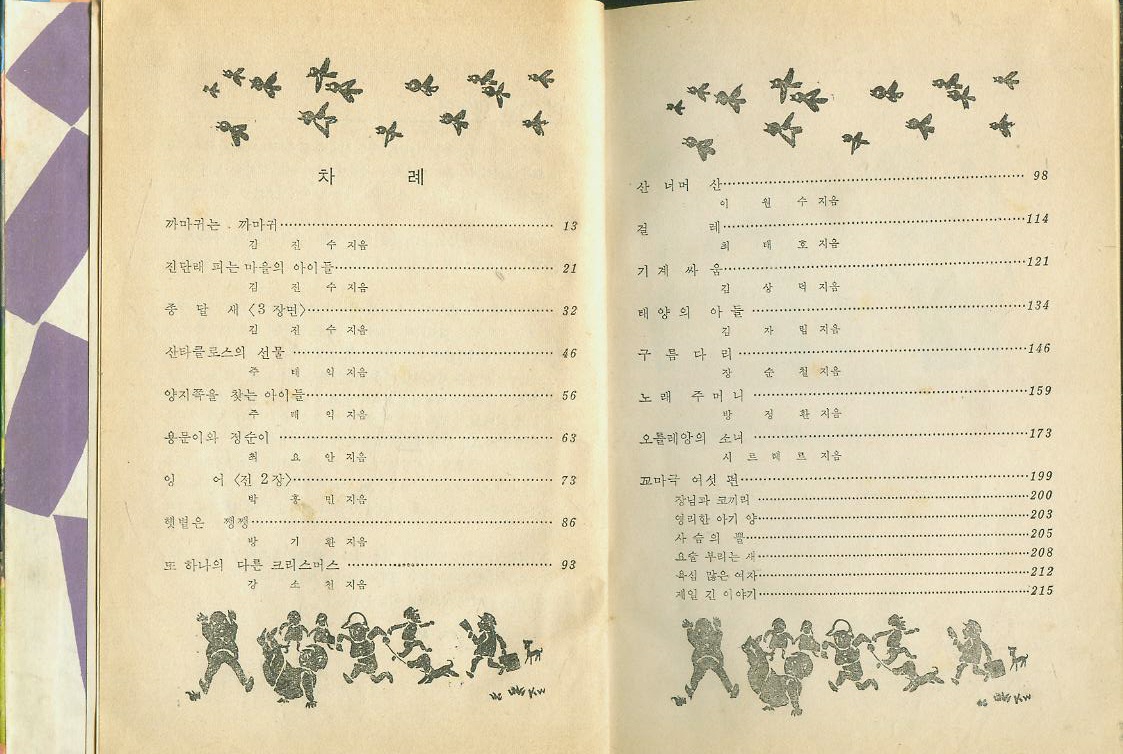 차 례
까마귀는 까마귀 13
김 진 수 지음
진달래 피는 마을의 아이들 21
김 진 수 지음
종 달 새 〈3 장면〉 32
김 진 수 지음
산타클로스의 선물 46
주 태 익 지음
양지쪽을 찾는 아이들 56
주 태 익 지음
용문이와 정순이 63
최 요 안 지음
잉 어 〈전 2장〉 73
박 흥 민 지음
햇볕은 쨍쨍 86
방 기 환 지음
또 하나의 다른 크리스머스 93
강 소 천 지음
산 너머 산 98
이 원 수 지음
걸 레 114
최 태 호 지음
기 계 싸 움 121
김 상 덕 지음
태양의 아들 134
김 자 림 지음
구 름 다 리 146
장 순 철 지음
노 래 주 머 니 159
방 정 환 지음
오를레앙의 소녀 173
시 르 레 르 지음
꼬마극 여섯 편 199
장님과 코끼리 200
영리한 아기 양 203
사 슴 의 뿔 205
요술 부리는 새 208
욕심 많은 여자 212
제일 긴 이야기 215
KW
KW